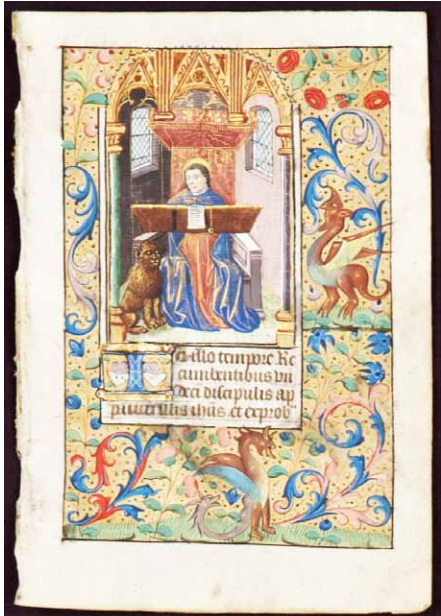 In illo tempore Re
cumbentibus vn
deci discipulis ap
paruit illis ihus et exprob